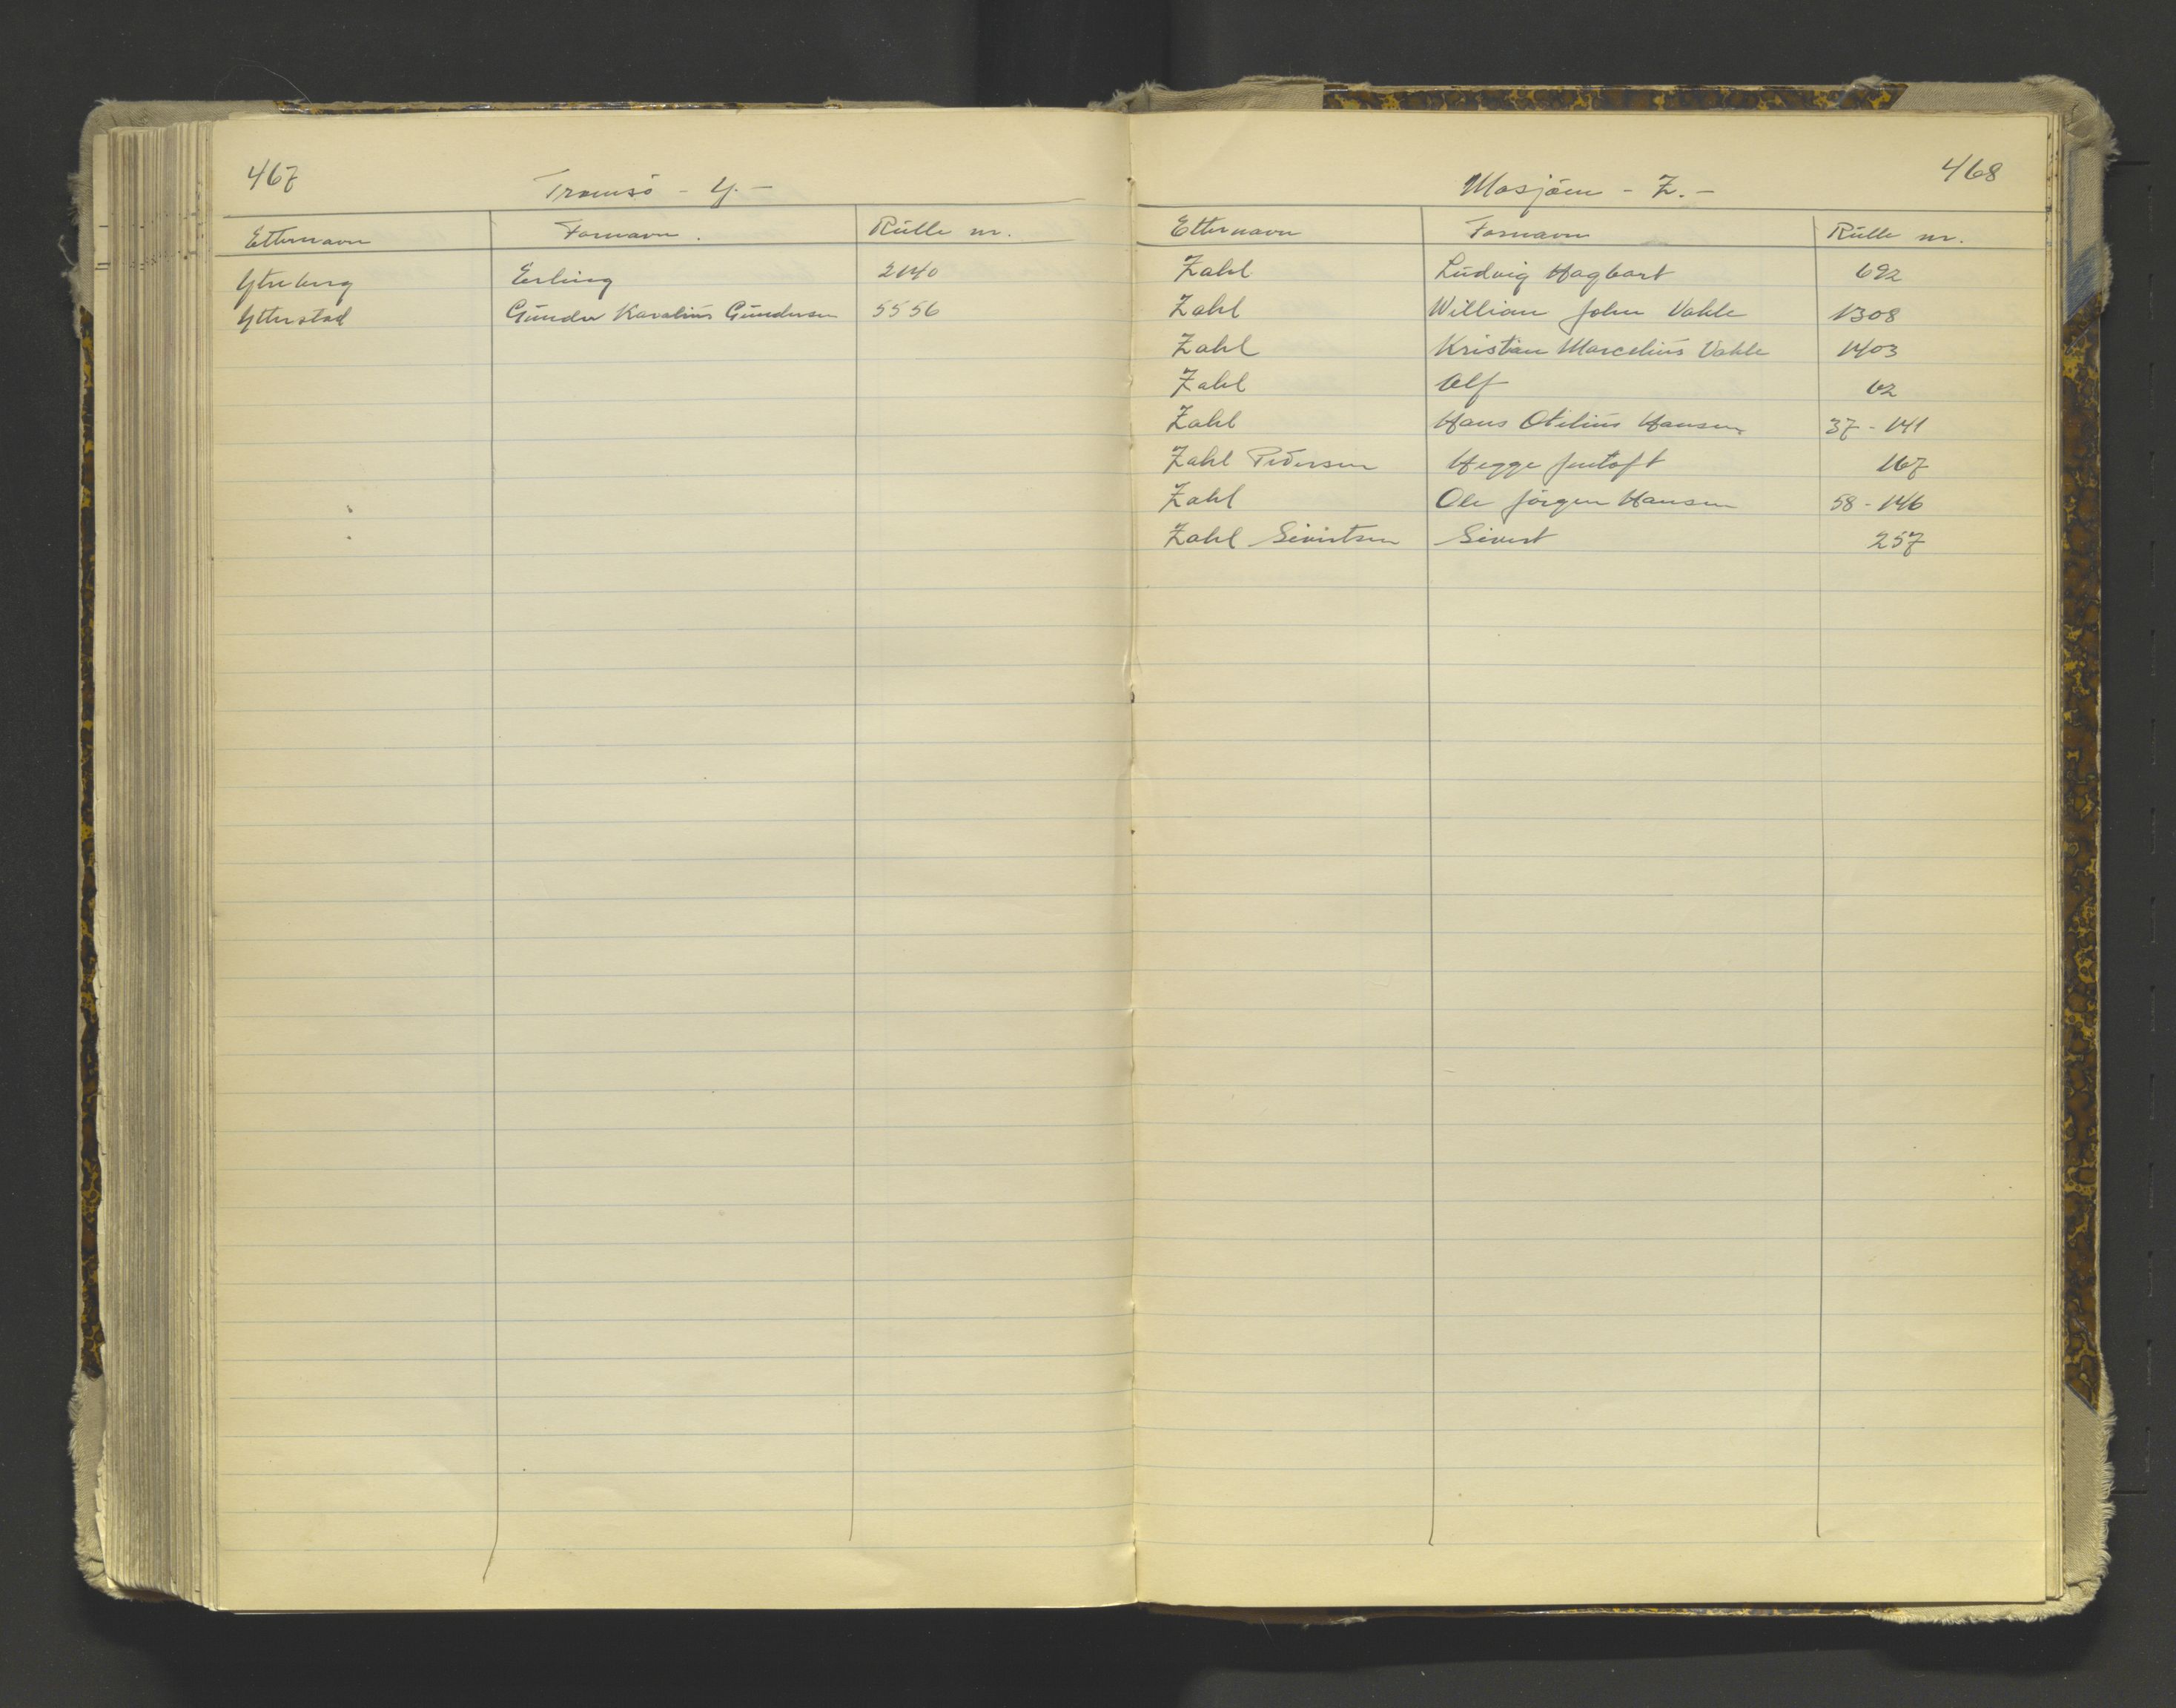 467
Tromsö - Y. -
Etternavn Fornavn. Rulle nr.
Ytreberg Erling 2140
Ytterstad Gunder Karolius Gundersen 5556
468
Mosjöen - Z. -
Etternavn Fornavn Rulle nr.
Zahl Ludvig Hagbart 692
Zahl William John Vahle 1308
Zahl Kristian Marcelius Vahle 1403
Zahl Alf 62
Zahl Hans Otilius Hansen 37 - 141
Zahl Pedersen Hegge Jentoft 167
Zahl Ole Jörgen Hansen 58 - 146
Zahl Sivertsen Sivert 257